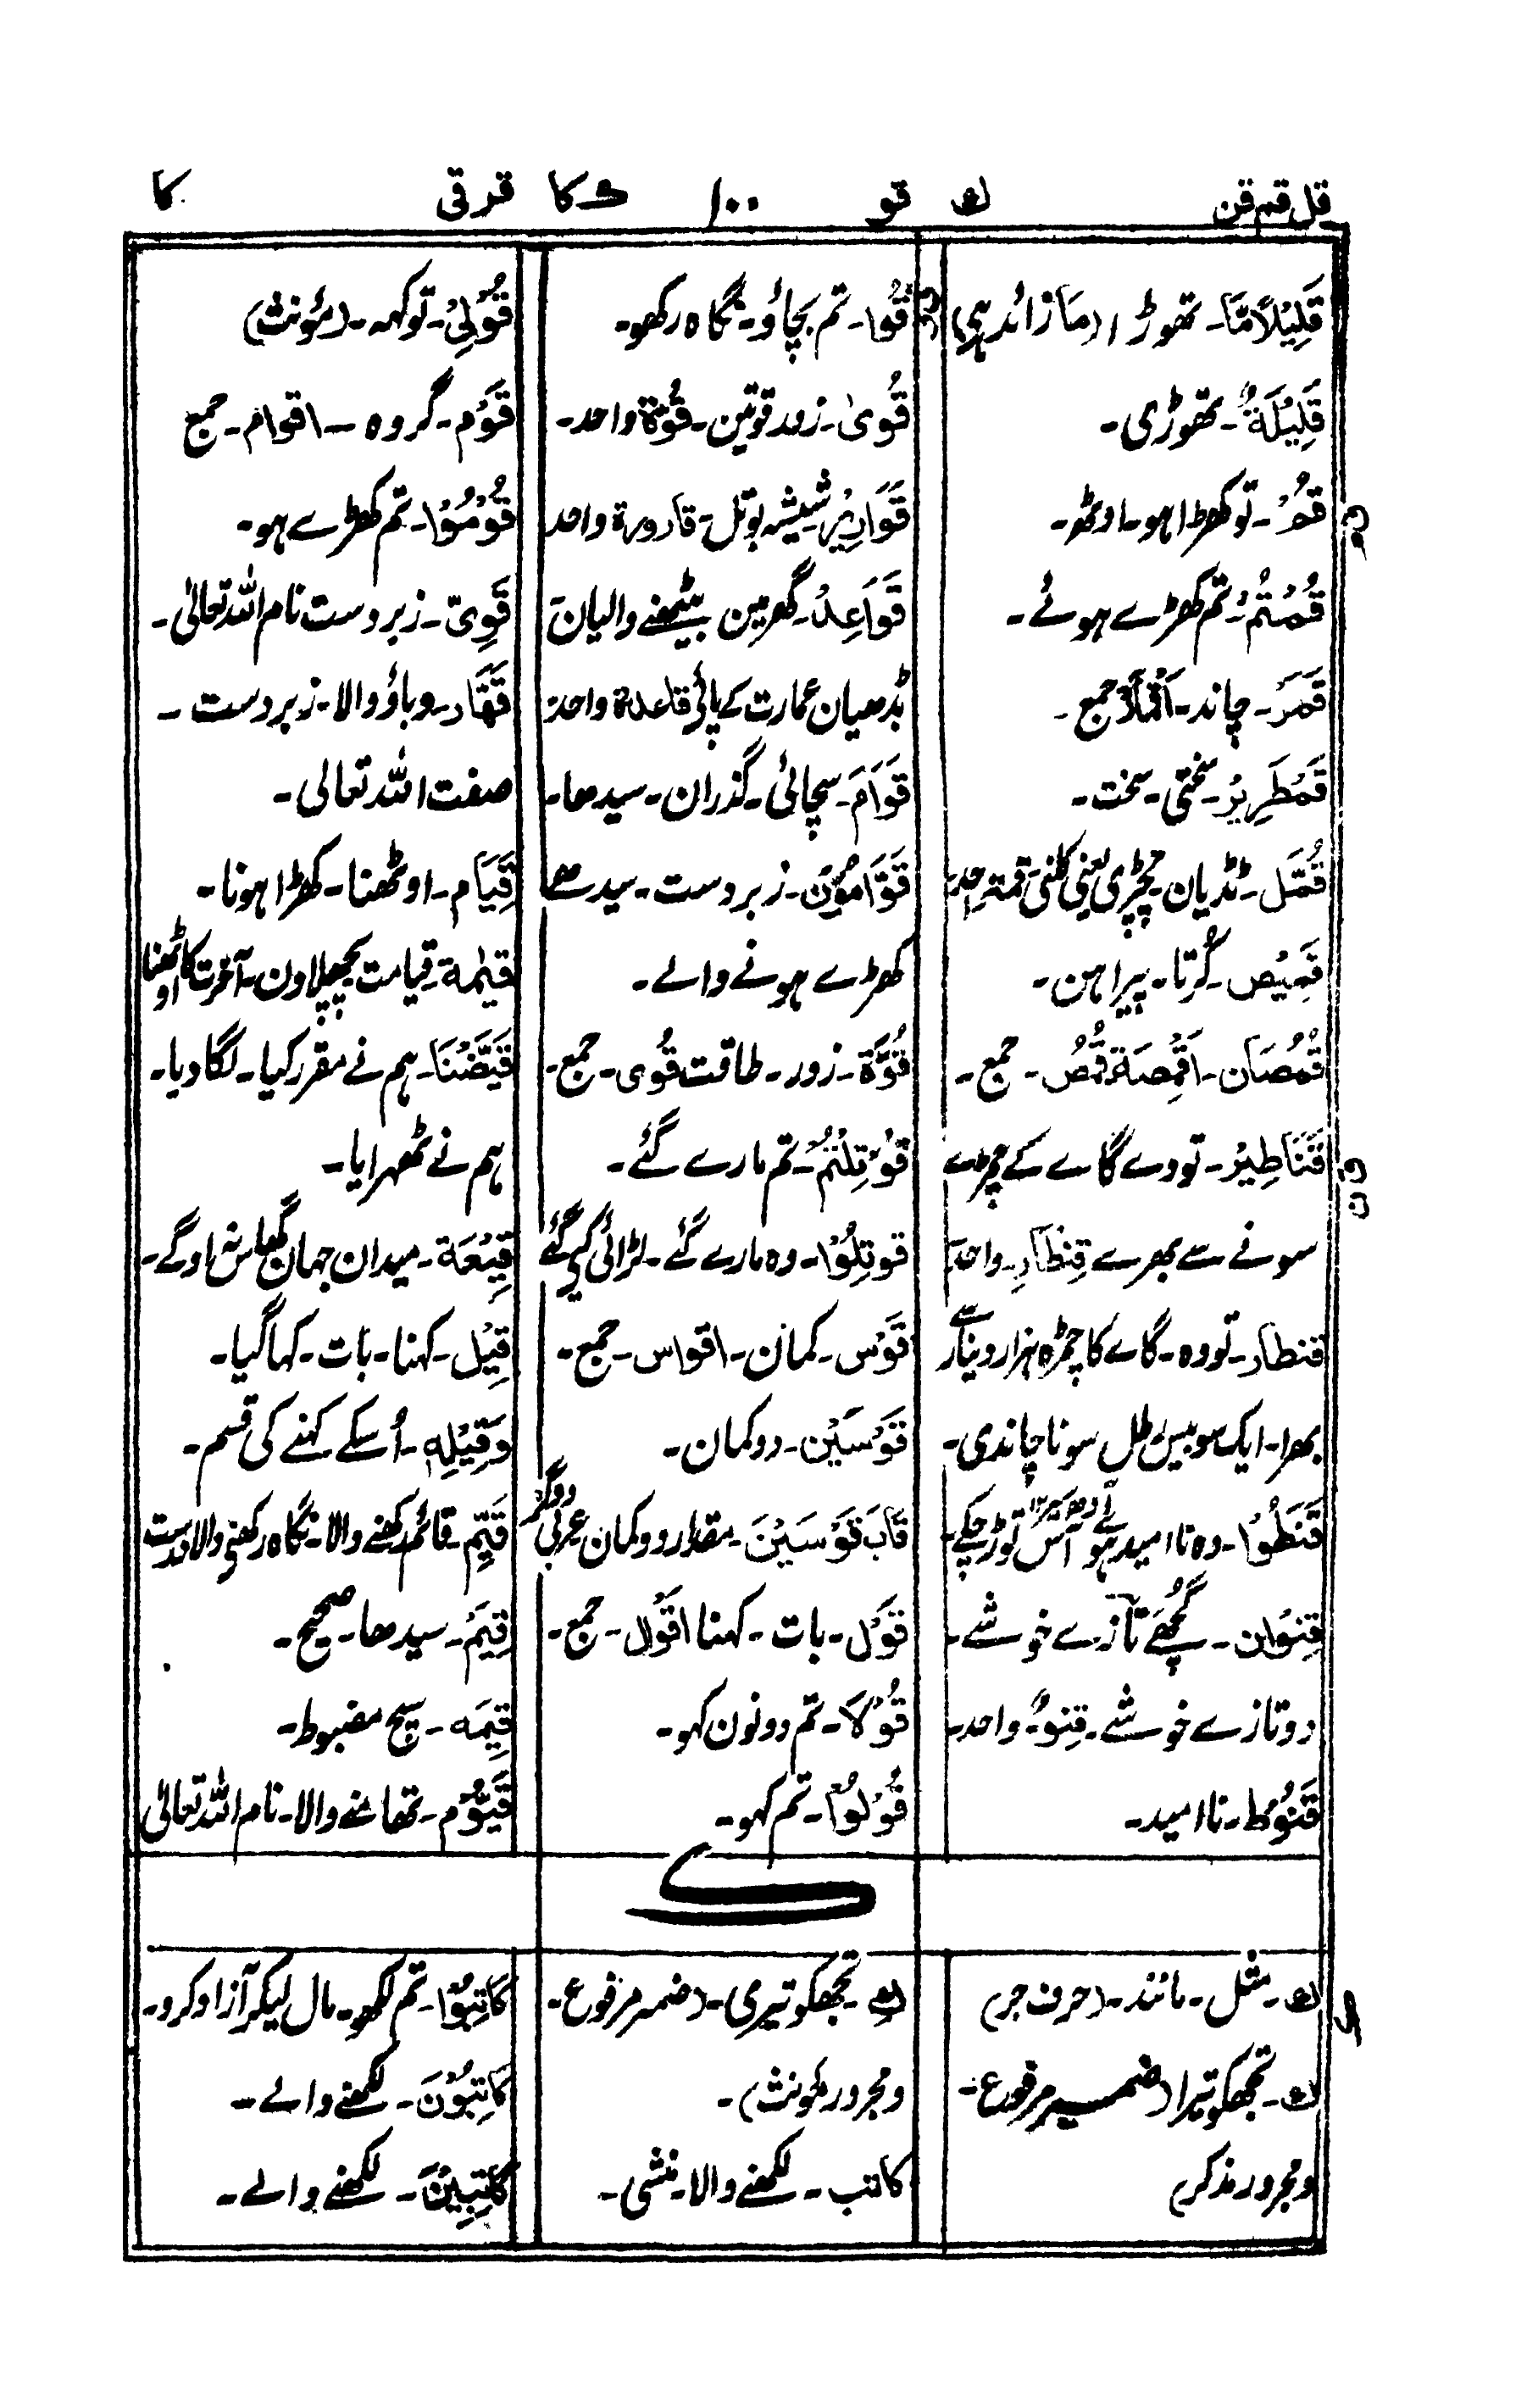 قل قم قن ك قو ۱۰۰ ك کا قہ قی کا
قَلِيْلًا مَّا۔ تھوڑا (مَا زائد ہے)
قَلِيْلَةٌ۔ تھوڑی۔
قم
قُمْ۔ تو کھڑا ہو۔ اوٹھ۔
قُمْتُمْ۔ تم کھڑے ہوئے۔
قَمَرَ۔ چاند۔ اَقْمَارْ جمع۔
قَمْطَرِيْرْ۔ سختی۔ سخت۔
قُمَّل۔ ٹڈیان چچڑی یعنی کلنی
قَمِيْص۔ کُرتا۔ پیراہن۔
قُمْصَان۔ اَقْمِصَة قُمُصْ۔ جمع۔
قن
قَنَاطِيْرْ۔ تودے گاے کے چمڑے
سونے سے بھرے قِنطَارِ۔ واحد۔
قنطار۔ تودہ۔ گاے کا چمڑہ ہزار دینار سے
بھرا۔ ایک سو بیس رطل سونا چاندی۔
قَنَطُوْا۔ وہ نا امید ہوئے آس توڑ چکے۔
قِنْوَان۔ گُچھے تازے خوشے۔
دو تازے خوشے۔ قِنوٌ۔ واحد۔
قَنُوْط۔ نا امید۔
قو
قُوْا۔ تم بچاؤ۔ نگاہ رکھو۔
قُویٰ۔ زور قوتین۔ قُوَّة واحد۔
قَوَارِيْر شیشہ بوتل۔ قارورة واحد
قَوَاعِدُ۔ گھر مین بیٹھنے والیان۔
بڈھیان عمارت کے پائے قاعدة واحد۔
قَوَامَ۔ سچائی۔ گذران۔ سیدھا۔
قَوَّامُوْنَ۔ زبردست۔ سیدھے
کھڑے ہونے والے۔
قُوَّة۔ زور۔ طاقت قُوی۔ جمع۔
قُوْتِلْتُمْ۔ تم مارے گئے۔
قوتِلُوْا۔ وہ مارے گئے۔ لڑائی کیے گئے
قَوْس۔ کمان۔ اقواس۔ جمع۔
قَوْسَيْن۔ دو کمان۔
قَابَ قَوْسَيْنَ۔ مقدار دو کمان عربی دو گز
قَوْل۔ بات۔ کہنا اقوَال۔ جمع۔
قُوْلَا۔ تم دونون کہو۔
قُوْلُوْا۔ تم کہو۔
قُوْلِيْ۔ تو کہہ۔ (مؤنث)
قَوْم۔ گروہ۔ اقوام۔ جمع
قُوْمُوْا۔ تم کھڑے ہو۔
قَوِیّ۔ زبردست نام اللہ تعالیٰ۔
قَهَّار۔ دباؤ والا۔ زبردست۔
صفت اللہ تعالی۔
قِيَام۔ اوٹھنا۔ کھڑا ہونا۔
قیٰمة۔ قیامت پچھلا دن۔ آخرت کا اوٹھنا
قَيَّضْنَا۔ ہم نے مقرر کیا۔ لگا دیا۔
ہم نے ٹھہرایا۔
قِيْعَة۔ میدان جہان گھاس نہ اوگے۔
قِيْل۔ کہنا۔ بات۔ کہا گیا۔
وَقِيْلِهٖ۔ اُسکے کہنے کی قسم۔
قَيِّم۔ قائم رکھنے والا۔ نگاہ رکھنے والا درست
قِيَمْ۔ سیدھا۔ صحیح۔
قِيَمَه۔ سچ مضبوط۔
قَيُّوْم۔ تھامنے والا۔ نام اللہ تعالیٰ
ك
ك
ك۔ مثل۔ مانند۔ (حرف جر)
ك۔ تجھکو تیرا (ضمیر مرفوع۔
و مجرور مذکر)
كِ۔ تجھکو تیری۔ (ضمہ مرفوع۔
و مجرور مؤنث)۔
کاتب۔ لکھنے والا۔ منشی۔
كَاتِبُوْا۔ تم لکھو۔ مال لیکر آزاد کرو۔
كَاتِبُوْنَ۔ لکھنے والے۔
كَاتِبِيْنَ۔ لکھنے والے۔